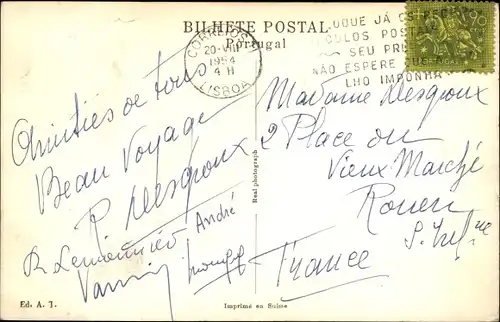 BILHETE POSTAL
Portugal
CORREIOS
20-VIII
1954
4 H
LISBOA
COLOQUE JÁ OS RECE
CULOS POSTA
SEU PRÉ
NÃO ESPERE QUE
LHO IMPONHA
90
Amitiés de tous
Beau Voyage
R Desgroux
R Lemonnier André
Madame Desgroux
2 Place du
Vieux Marché
Rouen
S. Infre
France
Real photograph
Ed. A. T.
Imprimé en Suisse